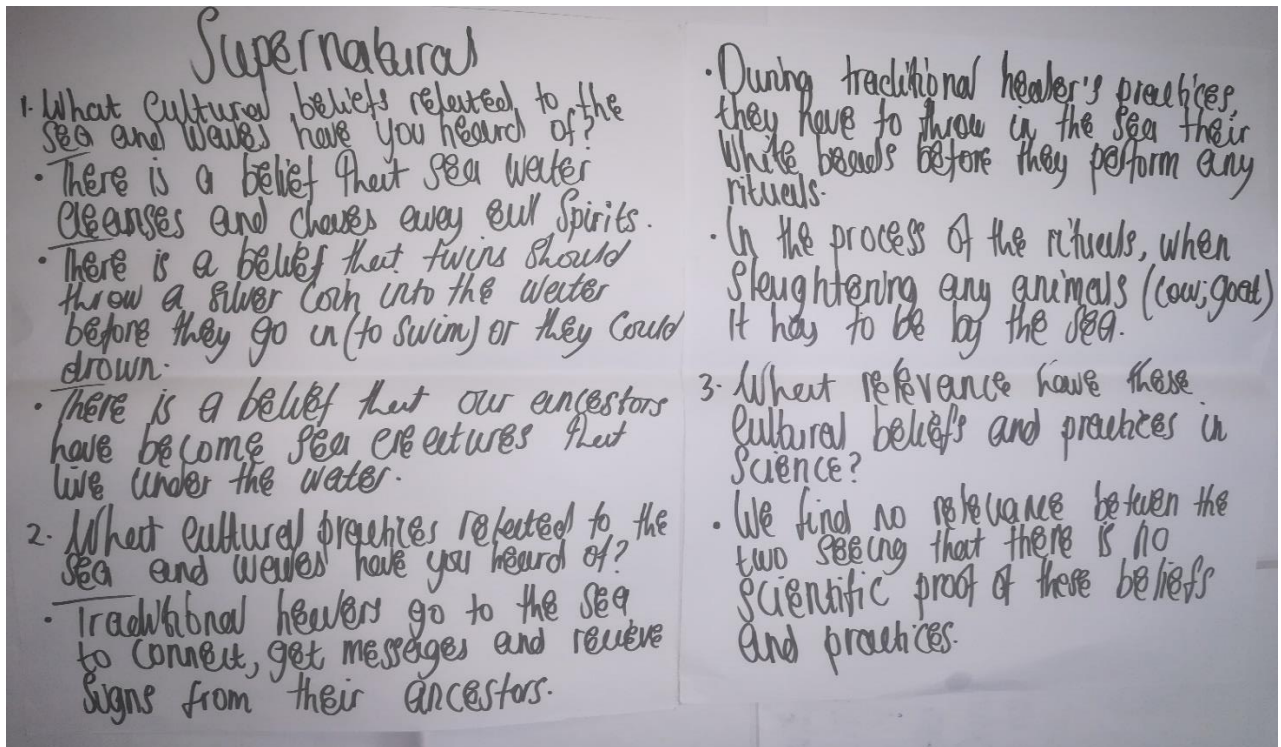 Supernatural
1. What cultural beliefs related to the
sea and waves have you heard of?
• There is a belief that sea water
cleanses and chases away evil spirits.
• There is a belief that twins should
throw a silver coin into the water
before they go in (to swim) or they could
drown.
• There is a belief that our ancestors
have become sea creatures that
live under the water.
2. What cultural practices related to the
sea and waves have you heard of?
• Traditional healers go to the sea
to connect, get messages and recieve
signs from their ancestors.
• During traditional healer's practices,
they have to throw in the sea their
white beads before they perform any
rituals.
• In the process of the rituals, when
slaughtering any animals (cow; goat)
it has to be by the sea.
3. What relevance have these
cultural beliefs and practices in
science?
• We find no relevance between the
two seeing that there is no
scientific proof of these beliefs
and practices.